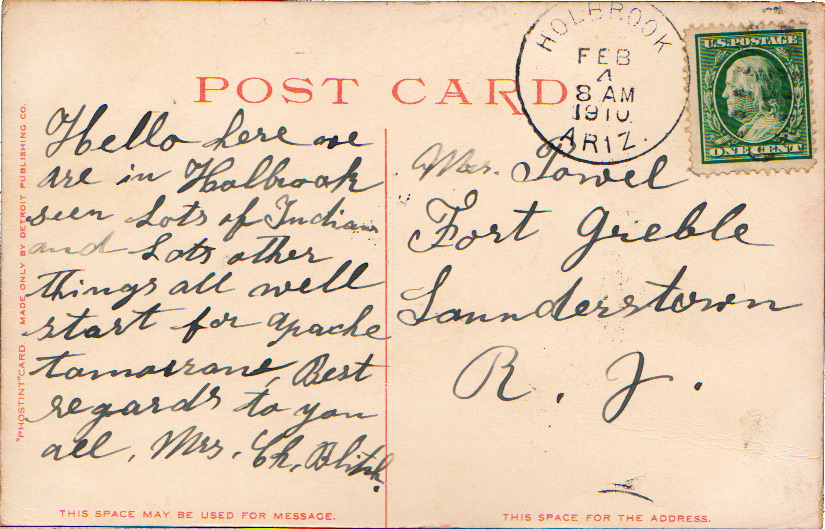 HOLBROOK
FEB
4
8 AM
1910
ARIZ.
U.S. POSTAGE
ONE CENT
POST CARD
"PHOSTINT" CARD. MADE ONLY BY DETROIT PUBLISHING CO.
Hello here we
are in Holbrook
seen Lots of Indians
and Lots other
things all well
start for apache
tomorrow, Best
regards to you
all, Mrs, Ch, Blitch.
Mrs. Powel
Fort Greble
Saunderstown
R. I.
THIS SPACE MAY BE USED FOR MESSAGE.
THIS SPACE FOR THE ADDRESS.